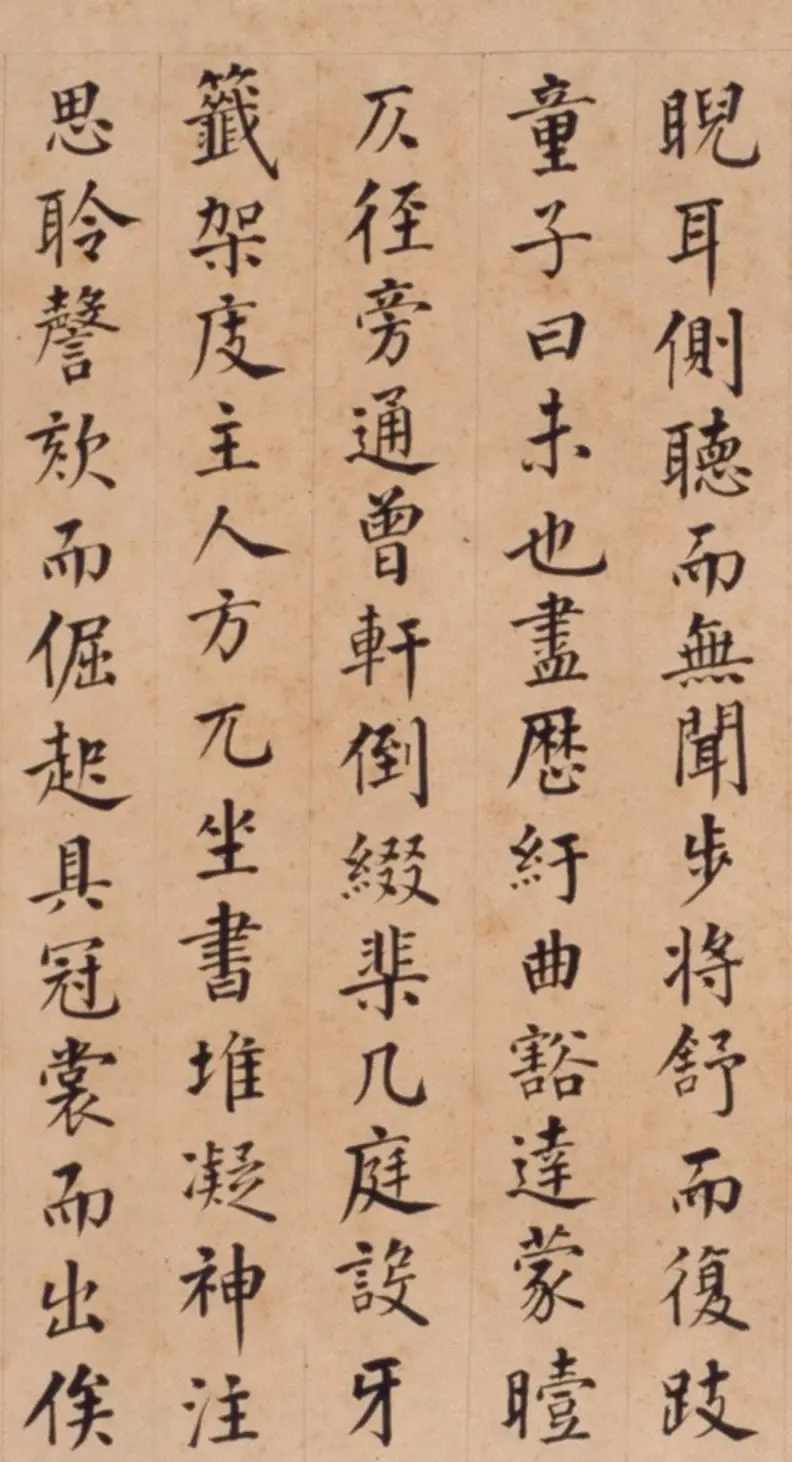 睨耳側聽而無聞步將舒而復跂
童子曰未也盡歷紆曲豁達蒙曀
仄徑旁通曾軒倒綴棐几庭設牙
籤架庋主人方兀坐書堆凝神注
思聆謦欬而倔起具冠裳而出俟